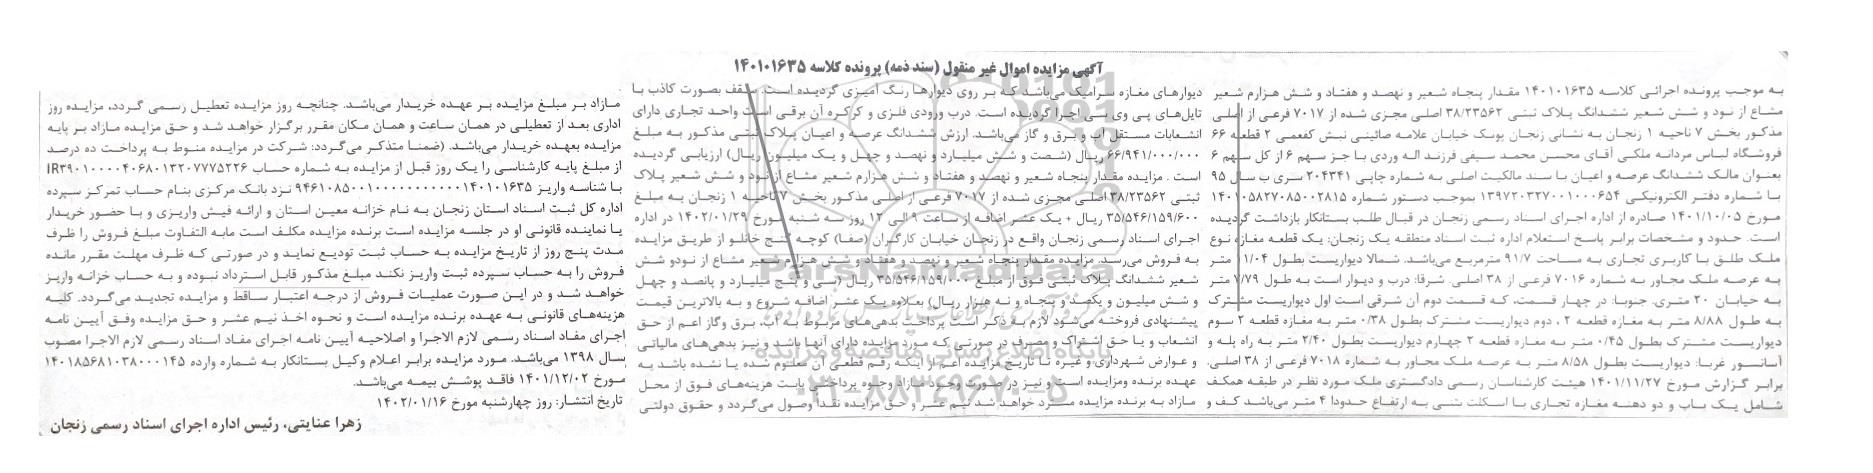 آگهی مزایده اموال غیر منقول (سند ذمه) پرونده کلاسه ۱۴۰۱۰۱۶۳۵
به موجب پرونده اجرائی کلاسه ۱۴۰۱۰۱۶۳۵ مقدار پنجاه شعیر و نهصد و هفتاد و شش هزارم شعیر
مشاع از نود و شش شعیر ششدانگ پلاک ثبتی ۳۸/۲۳۵۶۲ اصلی مجزی شده از ۷۰۱۷ فرعی از اصلی
مذکور بخش ۷ ناحیه ۱ زنجان به نشانی زنجان پونک خیابان علامه صائینی نبش کفعمی ۲ قطعه ۶۶
فروشگاه لباس مردانه ملکی آقای محسن محمد سیفی فرزند اله وردی با جز سهم ۶ از کل سهم ۶
بعنوان مالک ششدانگ عرصه و اعیان با سند مالکیت اصلی به شماره چاپی ۲۰۴۳۴۱ سری ب سال ۹۵
با شماره دفتر الکترونیکی ۱۳۹۷۲۰۳۲۷۰۰۱۰۰۰۶۵۴ بموجب دستور شماره ۱۴۰۱۰۵۸۲۷۰۸۵۰۰۲۸۱۵
مورخ ۱۴۰۱/۱۰/۰۵ صادره از اداره اجرای اسناد رسمی زنجان در قبال طلب بستانکار بازداشت گردیده
است. حدود و مشخصات برابر پاسخ استعلام اداره ثبت اسناد منطقه یک زنجان: یک قطعه مغازه نوع
ملک طلق با کاربری تجاری به مساحت ۹۱/۷ مترمربع می‌باشد. شمالا دیواریست بطول ۱۱/۰۴ متر
به عرصه ملک مجاور به شماره ۷۰۱۶ فرعی از ۳۸ اصلی. شرقا: درب و دیوار است به طول ۷/۷۹ متر
به خیابان ۲۰ متری. جنوبا: در چهار قسمت، که قسمت دوم آن شرقی است اول دیواریست مشترک
به طول ۸/۸۸ متر به مغازه قطعه ۲ ، دوم دیواریست مشترک بطول ۰/۳۸ متر به مغازه قطعه ۲ سوم
دیواریست مشترک بطول ۰/۴۵ متر به مغازه قطعه ۲ چهارم دیواریست بطول ۲/۴۰ متر به راه پله و
آسانسور غربا: دیواریست بطول ۸/۵۸ متر به عرصه ملک مجاور به شماره ۷۰۱۸ فرعی از ۳۸ اصلی.
برابر گزارش مورخ ۱۴۰۱/۱۱/۲۷ هیئت کارشناسان رسمی دادگستری ملک مورد نظر در طبقه همکف
شامل یک باب و دو دهنه مغازه تجاری با اسکلت بتنی به ارتفاع حدودا ۴ متر می‌باشد کف و
دیوارهای مغازه سرامیک می‌باشد که بر روی دیوارها رنگ آمیزی گردیده است. سقف بصورت کاذب با
تایل‌های پی وی سی اجرا گردیده است. درب ورودی فلزی و کرکره آن برقی است واحد تجاری دارای
انشعابات مستقل آب و برق و گاز می‌باشد. ارزش ششدانگ عرصه و اعیان پلاک ثبتی مذکور به مبلغ
۶۶/۹۴۱/۰۰۰/۰۰۰ ریال (شصت و شش میلیارد و نهصد و چهل و یک میلیون ریال) ارزیابی گردیده
است . مزایده مقدار پنجاه شعیر و نهصد و هفتاد و شش هزارم شعیر مشاع از نود و شش شعیر پلاک
ثبتی ۳۸/۲۳۵۶۲ اصلی مجزی شده از ۷۰۱۷ فرعی از اصلی مذکور بخش ۷ ناحیه ۱ زنجان به مبلغ
۳۵/۵۴۶/۱۵۹/۶۰۰ ریال + یک عشر اضافه از ساعت ۹ الی ۱۲ روز سه شنبه مورخ ۱۴۰۲/۰۱/۲۹ در اداره
اجرای اسناد رسمی زنجان واقع در زنجان خیابان کارگران (صفا) کوچه گنج خانلو از طریق مزایده
به فروش می‌رسد. مزایده مقدار پنجاه شعیر و نهصد و هفتاد و شش هزارم شعیر مشاع از نودو شش
شعیر ششدانگ پلاک ثبتی فوق از مبلغ ۳۵/۵۴۶/۱۵۹/۰۰۰ ریال (سی و پنج میلیارد و پانصد و چهل
و شش میلیون و یکصد و پنجاه و نه هزار ریال) بعلاوه یک عشر اضافه شروع و به بالاترین قیمت
پیشنهادی فروخته می‌شود لازم به ذکر است پرداخت بدهی‌های مربوط به آب، برق وگاز اعم از حق
انشعاب و یا حق اشتراک و مصرف در صورتی که مورد مزایده دارای آنها باشد و نیز بدهی‌های مالیاتی
و عوارض شهرداری و غیره تا تاریخ مزایده اعم از اینکه رقم قطعی آن معلوم شده یا نشده باشد به
عهده برنده ومزایده است و نیز در صورت وجود مازاد وجوه پرداختی بابت هزینه‌های فوق از محل
مازاد به برنده مزایده مسترد خواهد شد نیم عشر و حق مزایده نقدا وصول می‌گردد و حقوق دولتی
مازاد بر مبلغ مزایده بر عهده خریدار می‌باشد. چنانچه روز مزایده تعطیل رسمی گردد، مزایده روز
اداری بعد از تعطیلی در همان ساعت و همان مکان مقرر برگزار خواهد شد و حق مزایده مازاد بر پایه
مزایده بعهده خریدار می‌باشد. (ضمنا متذکر می‌گردد: شرکت در مزایده منوط به پرداخت ده درصد
از مبلغ پایه کارشناسی را یک روز قبل از مزایده به شماره حساب IR۳۹۰۱۰۰۰۰۴۰۶۸۰۱۳۲۰۷۷۷۵۲۲۶
با شناسه واریز نزد بانک مرکزی بنام حساب تمرکز سپرده
اداره کل ثبت اسناد استان زنجان به نام خزانه معین استان و ارائه فیش واریزی و با حضور خریدار
یا نماینده قانونی او در جلسه مزایده است برنده مزایده مکلف است مابه التفاوت مبلغ فروش را ظرف
مدت پنج روز از تاریخ مزایده به حساب ثبت تودیع نماید و در صورتی که ظرف مهلت مقرر مانده
فروش را به حساب سپرده ثبت واریز نکند مبلغ مذکور قابل استرداد نبوده و به حساب خزانه واریز
خواهد شد و در این صورت عملیات فروش از درجه اعتبار ساقط و مزایده تجدید می‌گردد. کلیه
هزینه‌های قانونی به عهده برنده مزایده است و نحوه اخذ نیم عشر و حق مزایده وفق آیین نامه
اجرای مفاد اسناد رسمی لازم الاجرا و اصلاحیه آیین نامه اجرای مفاد اسناد رسمی لازم الاجرا مصوب
سال ۱۳۹۸ می‌باشد. مورد مزایده برابر اعلام وکیل بستانکار به شماره وارده ۱۴۰۱۸۵۶۸۱۰۳۸۰۰۰۱۴۵
مورخ ۱۴۰۱/۱۲/۰۲ فاقد پوشش بیمه می‌باشد.
تاریخ انتشار: روز چهارشنبه مورخ ۱۴۰۲/۰۱/۱۶
زهرا عنایتی، رئیس اداره اجرای اسناد رسمی زنجان
ParsNamadData
پایگاه اطلاع رسانی مناقصه و مزایده
۰۲۱-۸۸۳۴۹۶۷۰-۵